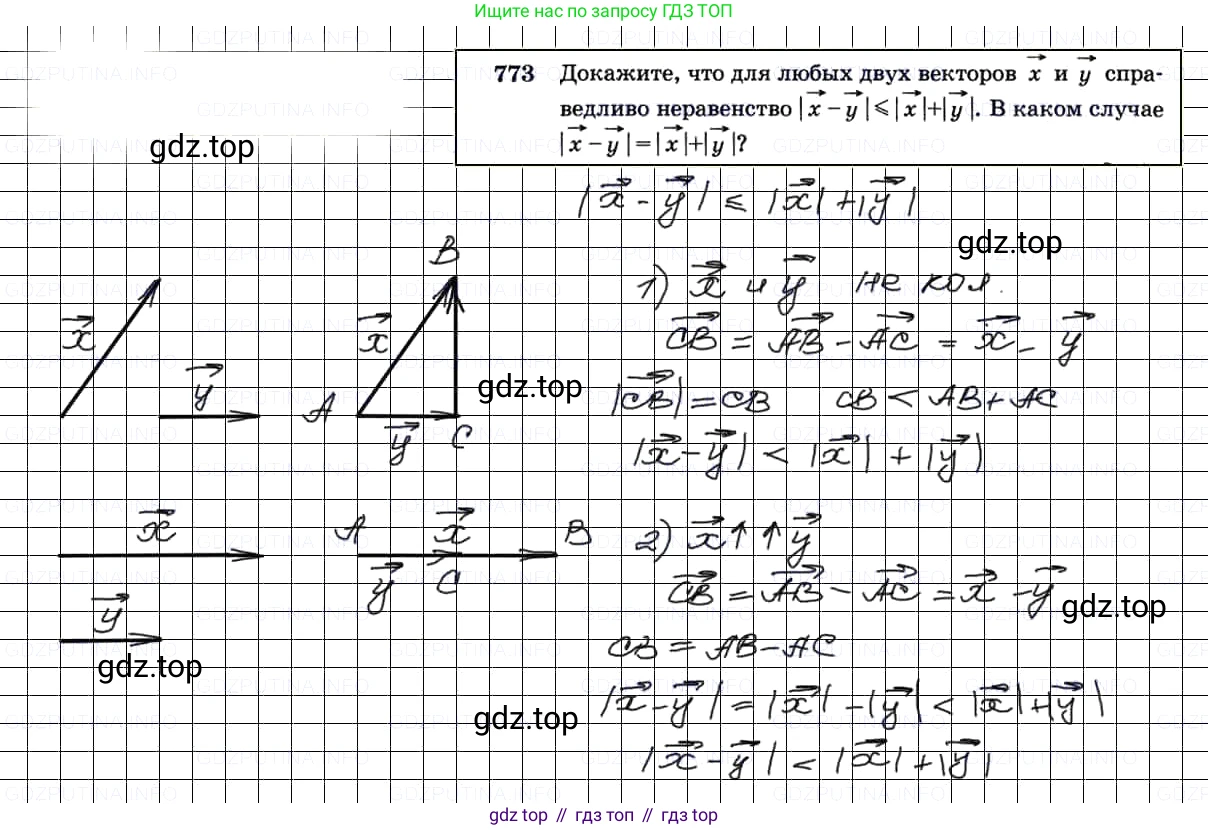 Ищите нас по запросу ГДЗ ТОП
773 Докажите, что для любых двух векторов x и y спра-
ведливо неравенство |x − y| ⩽ |x|+|y|. В каком случае
|x − y| = |x|+|y|?
gdz.top
|x - y| ≤ |x| + |y|
gdz.top
B
1) x и y не кол.
x
x
CB = AB - AC = x - y
y
gdz.top
A
y
C
|CB| = CB CB < AB + AC
|x - y| < |x| + |y|
x
A
x
B
2) x ↑↑ y
y
y
C
CB = AB - AC = x - y
gdz.top
CB = AB - AC
gdz.top
|x - y| = |x| - |y| < |x| + |y|
gdz.top
|x - y| < |x| + |y|
GDZPUTINA.INFO
gdz top // гдз топ // gdz top